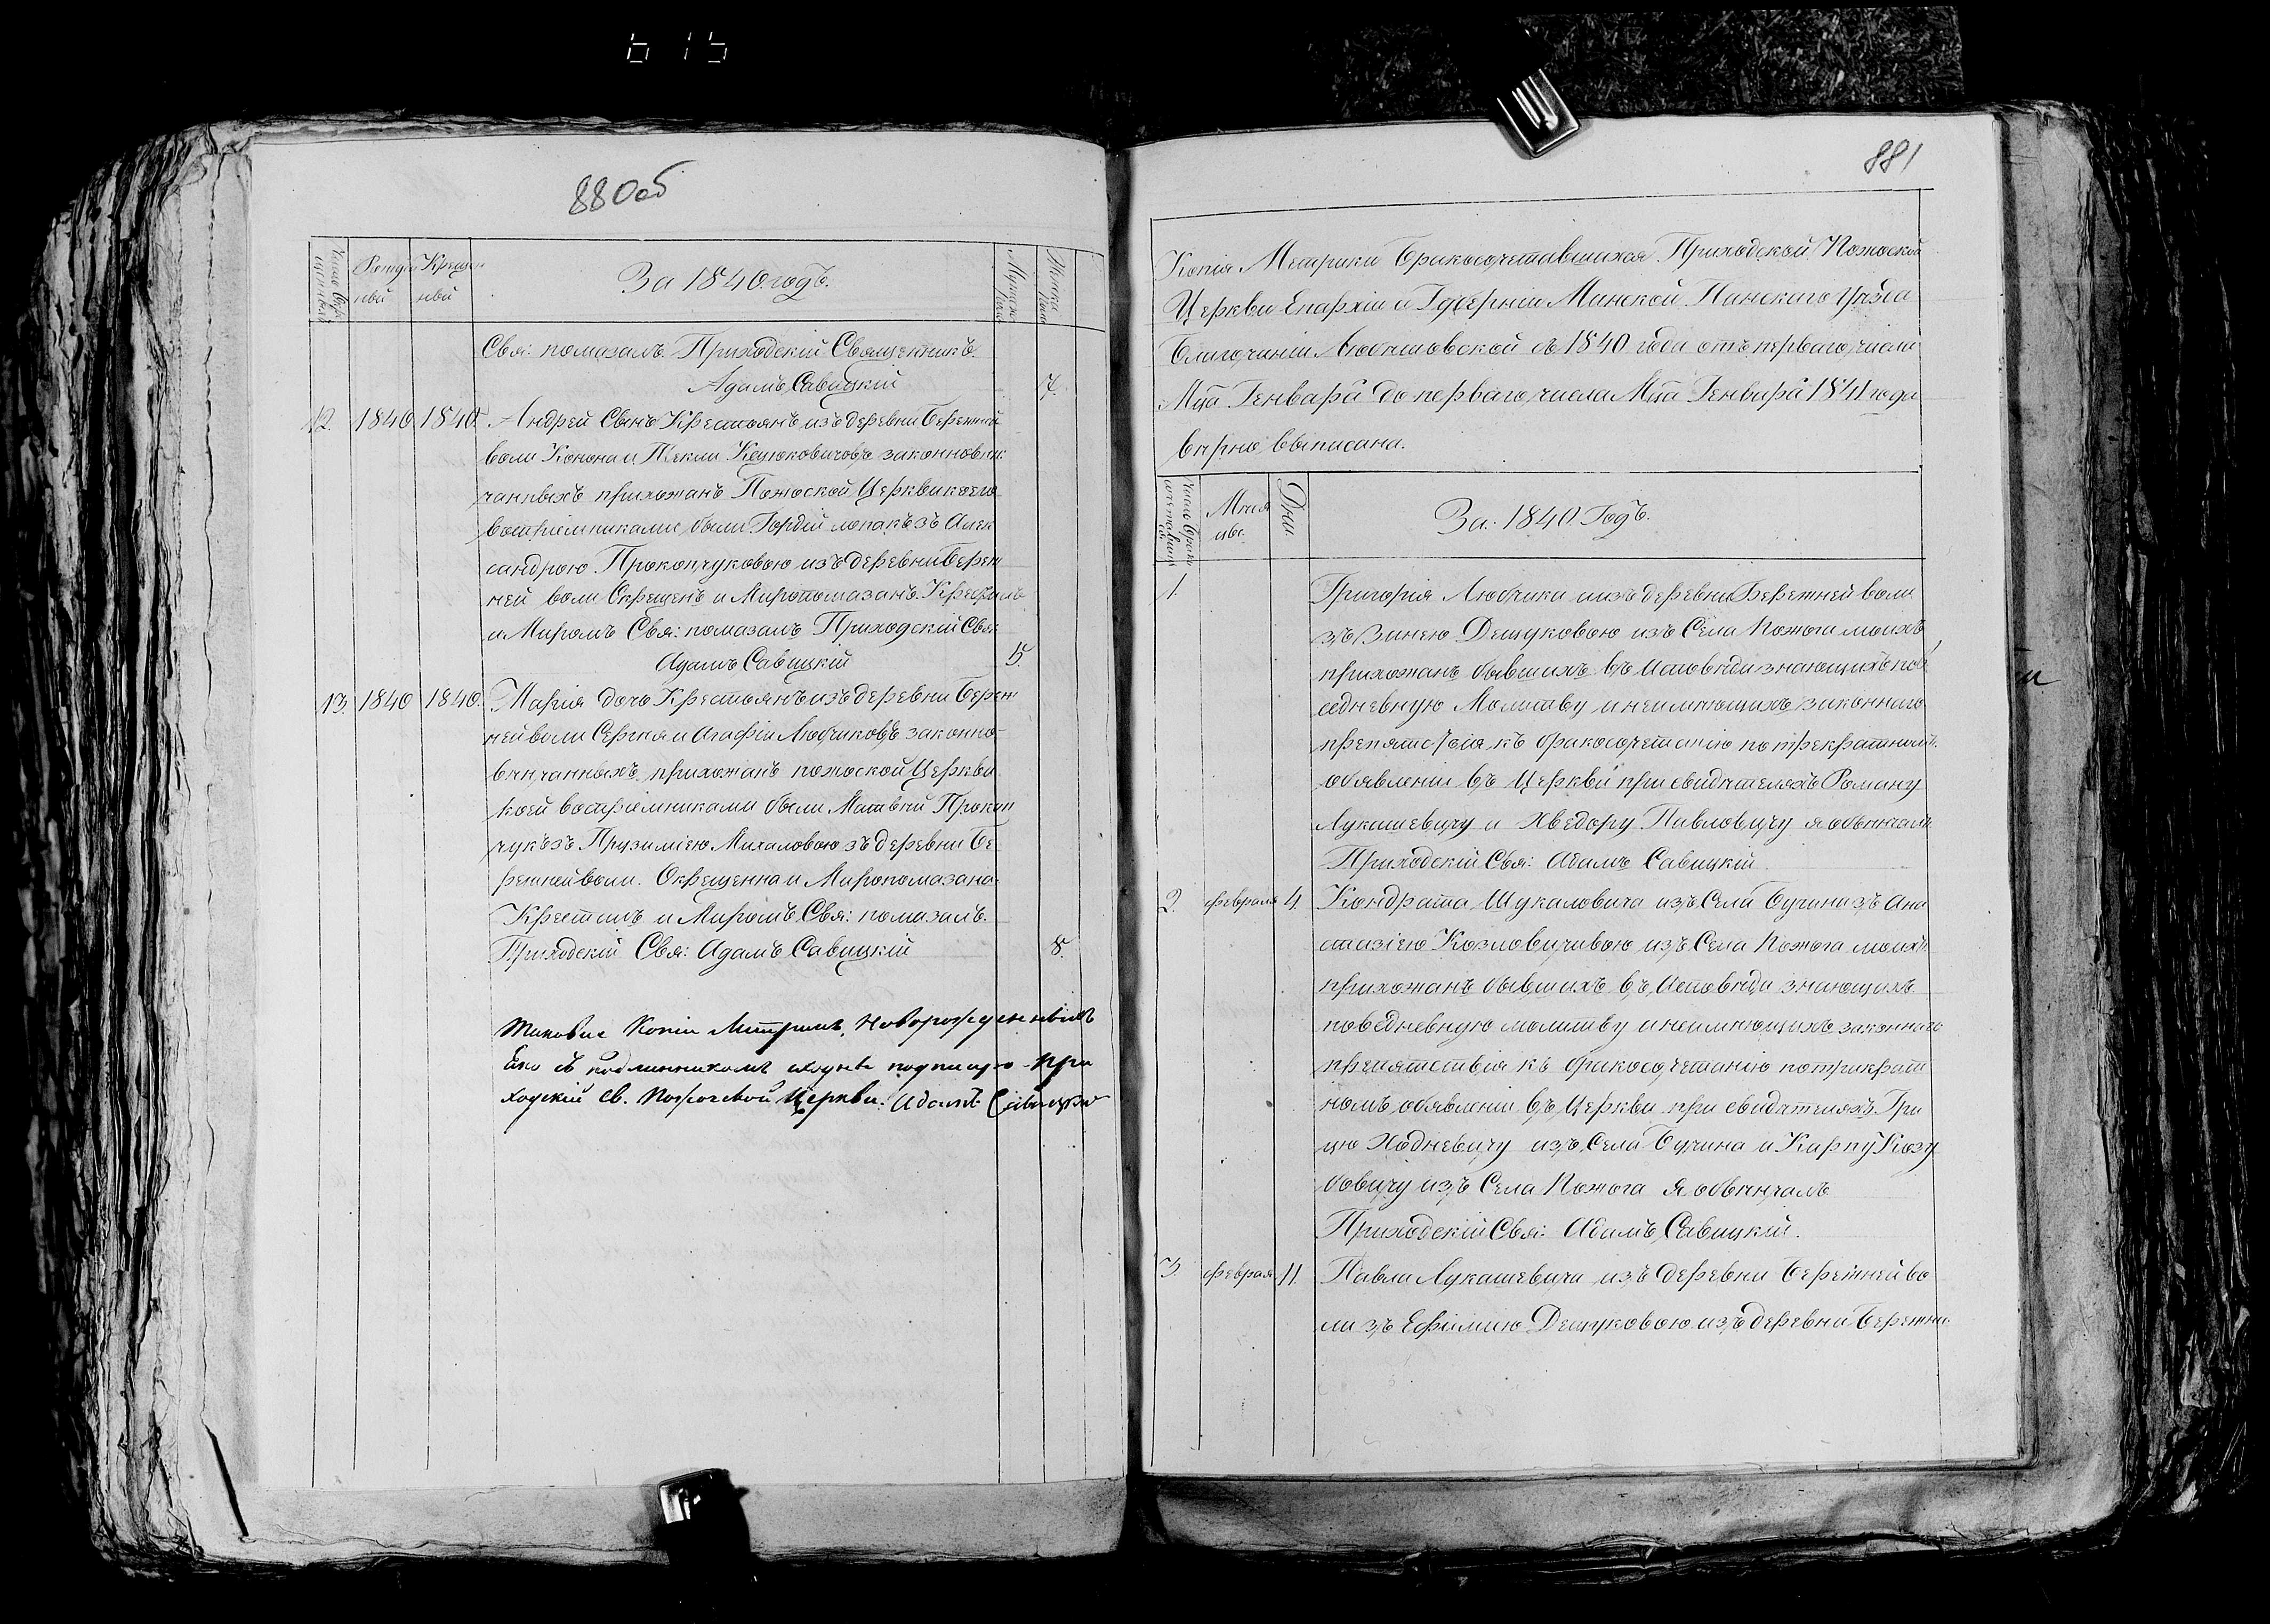 615
880об
Рожден Крещен
ный ный
За 1840 годъ.
Мужеска пола
Женска пола
Свя: помазалъ Приходскій Священникъ
Адамъ Савицкій 7.
12. 1840 1840. Андрей Сынъ Крестьянъ изъ деревни Бережной
воли Конона и Теклы законновен
чанныхъ прихожанъ Пожоской Церкви коего
воспріемниками были Гордій зъ Алек
сандрою Прокопчуковою изъ деревни Береж
ней воли Окрещенъ и Миропомазанъ Крестилъ
и Миромъ Свя: помазалъ Приходскій Свя:
Адамъ Савицкій 5.
13. 1840 1840. Марія дочь Крестьянъ изъ деревни Береж
ней воли Сергея и Агафіи Любчиковъ законно-
вѣнчанныхъ прихожанъ пожоской Церкви
коей воспріемниками были Матвей Прокоп
чукъ зъ Михаловою зъ деревни Бе
режней воли. Окрещенна и Миропомазана
Крестилъ и Миромъ Свя: помазалъ.
Приходскій Свя: Адамъ Савицкій 8.
Таковые Копіи Метрикъ Новорожденныхъ
съ подлинникомъ сходны подпишу - При
ходскій Св. Пожогской Церкви: Адамъ Савицкій
881
Копія Метрики Бракосочетавшихся Приходской Пожоской
Церкви Епархіи и Губерніи Минской Пинскаго Уѣзда
Благочинія Любешовской съ 1840 года отъ перваго числа
Мца Генваря до перваго числа Мца Генваря 1841 года
вѣрно выписана.
Число брако сочетавших ся
Мѣся
цы.
Дни.
За 1840 Годъ.
1. Григорія Любчика изъ деревни Бережней воли
зъ Зинею Дешуковою изъ Села Пожога моихъ
прихожанъ бывшихъ въ Исповѣди знающихъ пов
седневную Молитву и неимѣющихъ законнаго
препятствія къ бракосочетанію по трекратномъ
объявленіи въ Церкви при свидѣтеляхъ Роману
Лукашевичу и Хведору Павловичу я обвѣнчалъ
Приходскій Свя: Адамъ Савицкій
2. февраля 4. Кондрата Шукаловича изъ Села Бучина зъ Ана
стазіею Козловичивою изъ Села Пожога моихъ
прихожанъ бывшихъ въ Исповѣди знающихъ
поведневную молитву и неимѣющихъ законнаго
препятствія къ бракосочетанію по трикрат
номъ объявленіи въ Церкви при свидѣтеляхъ Гри
цю Ходневичу изъ Села Бучина и Карпу Козу
бовичу изъ Села Пожога Я обвѣнчалъ
Приходскій Свя: Адамъ Савицкій.
3. февраля 11. Павла Лукашевича изъ деревни Бережней во
ли зъ Ефимию Дешуковою изъ деревни Бережне